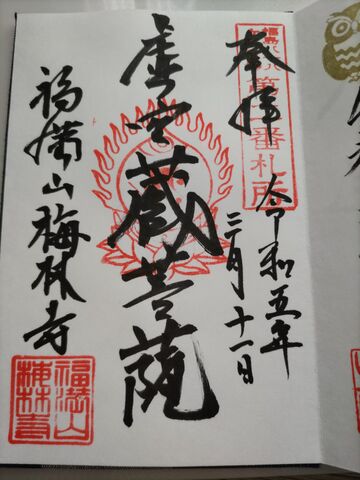 奉拝
第二番札所
令和五年
三月十一日
虚空蔵菩薩
福満山梅林寺
福満山
梅林寺